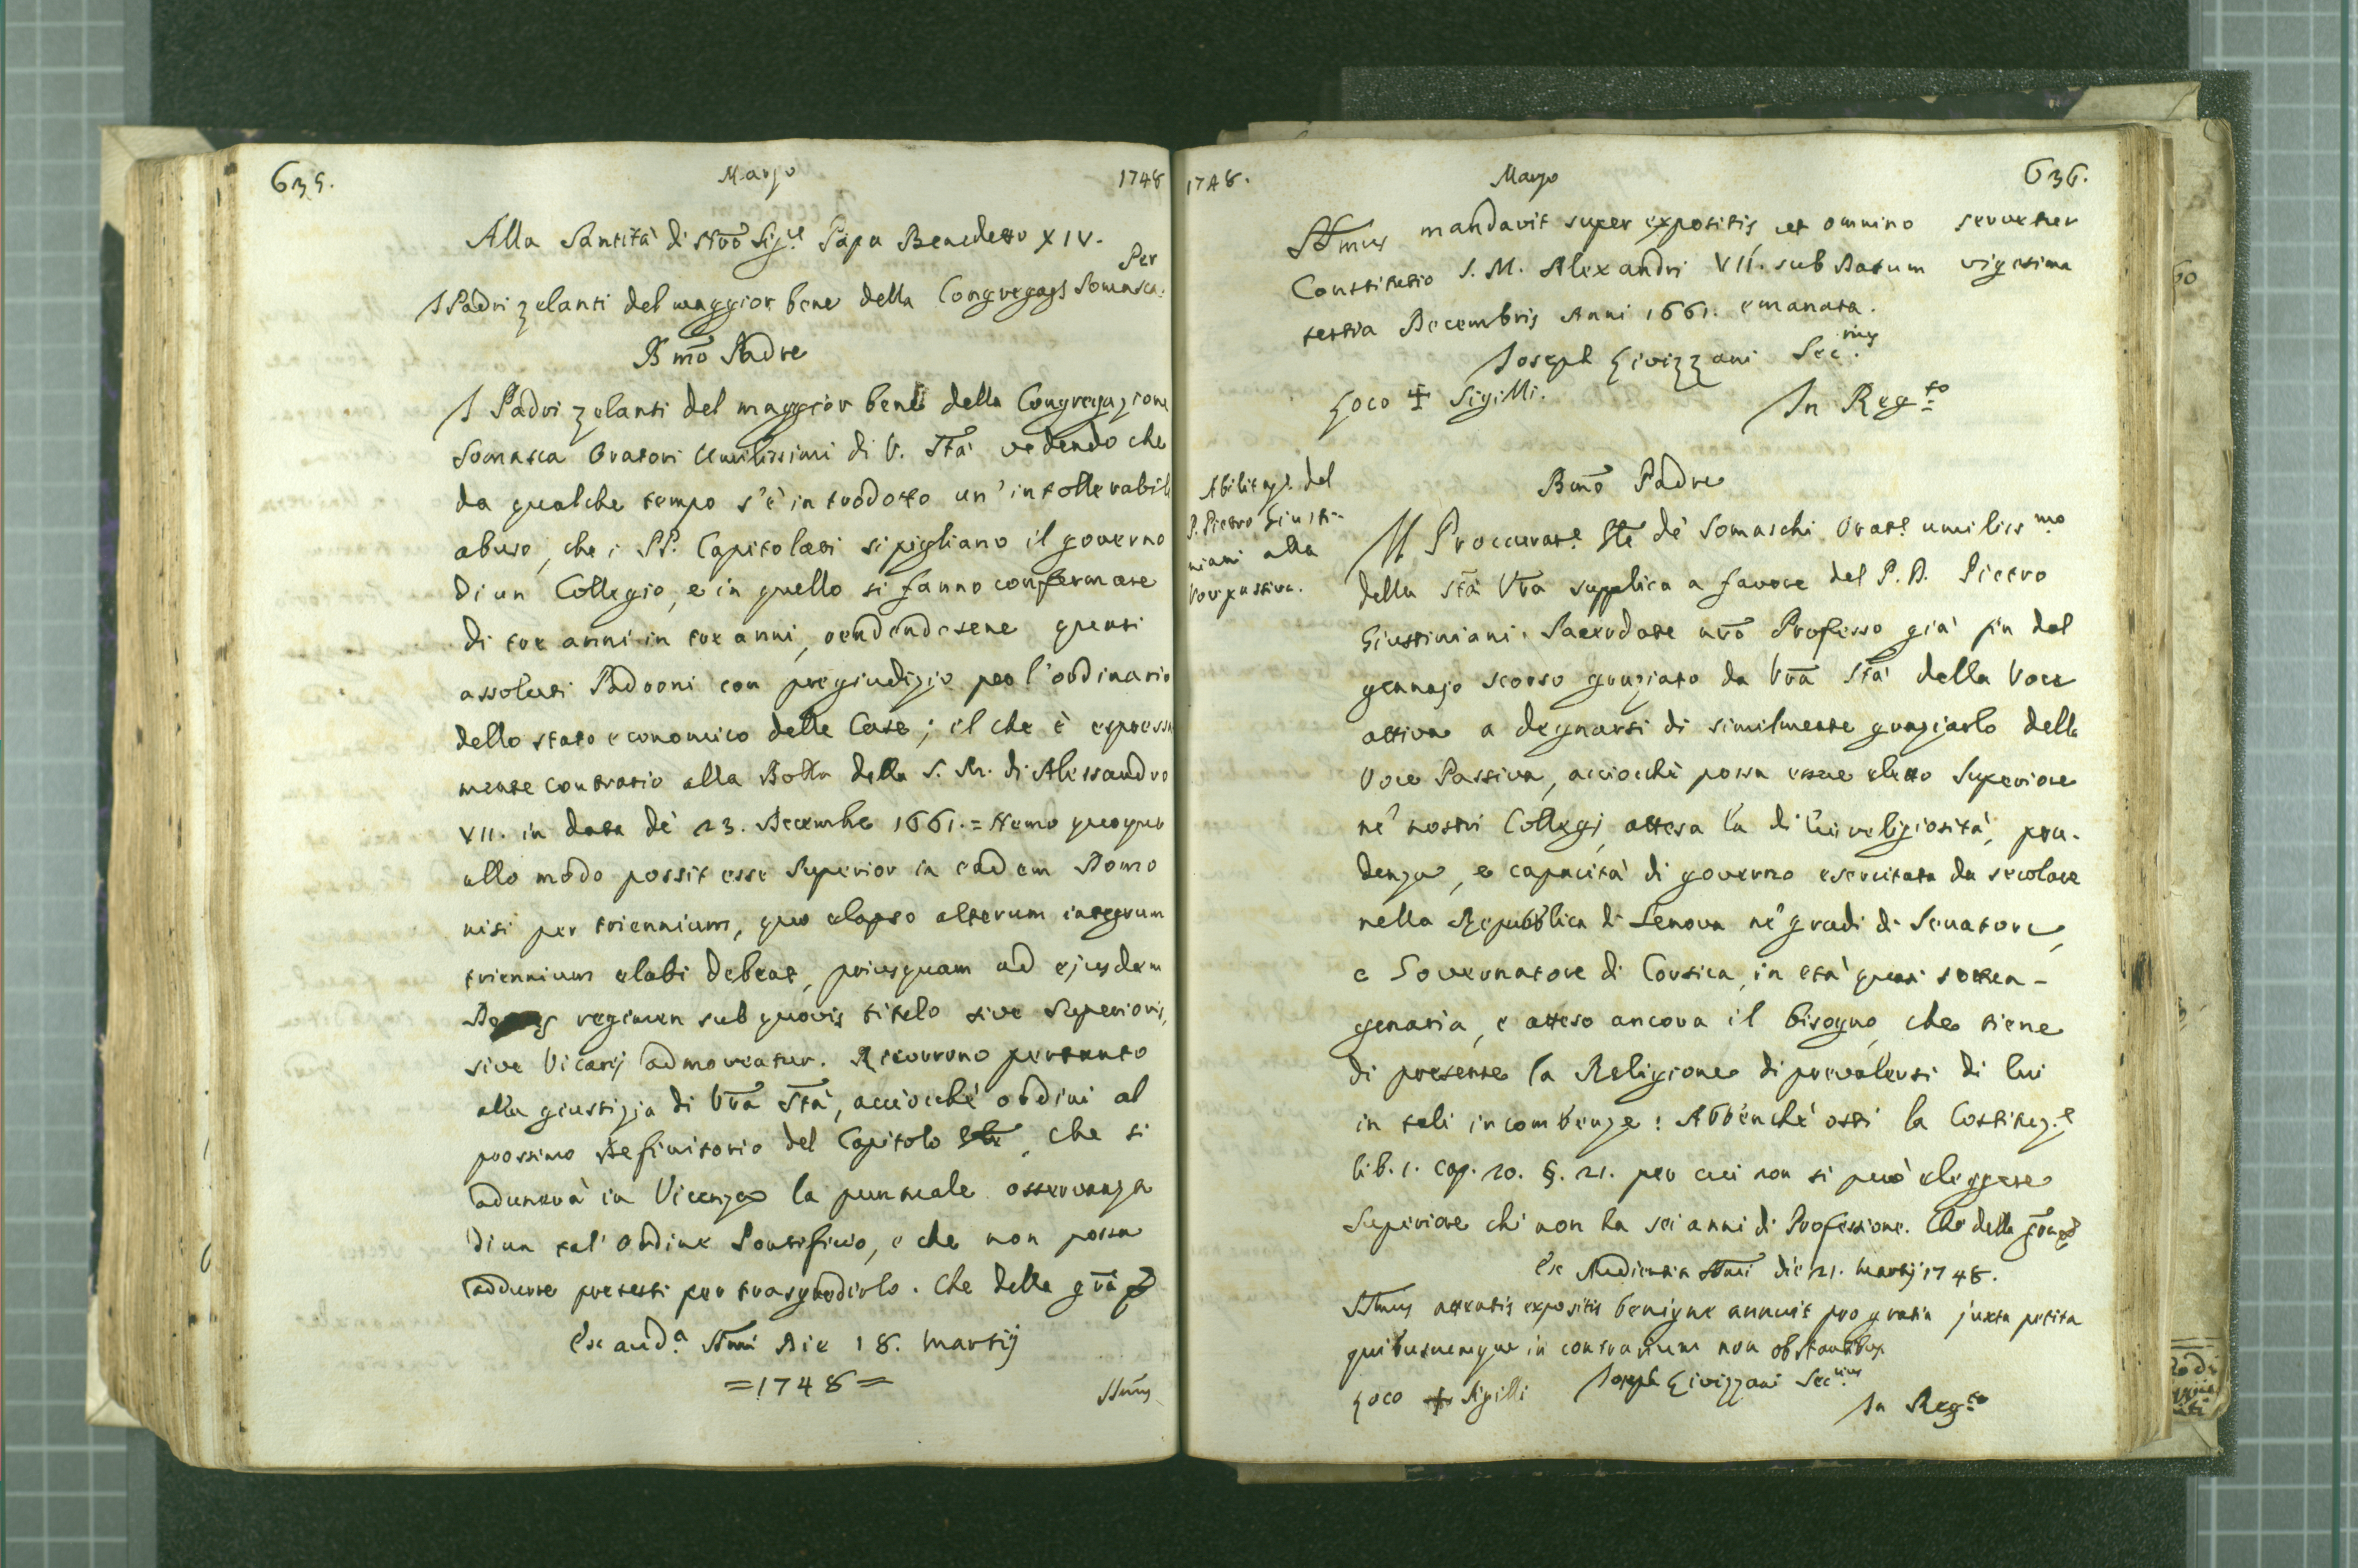 635. Marzo 1748
Alla Santità di Nrõ Sig.re Papa Benedetto XIV.
Per
I Padri zelanti del maggior bene della Congregaz. Somasca:
Bmõ Padre
I Padri zelanti del maggior bene della Congregazione
Somasca Oratori Umilissimi di V. Stã vedendo che
da qualche tempo s'è introdotto un' intollerabil
abuso, che i PP. Capitolari si pigliano il governo
di un Collegio, e in quello si fanno confermare
di tre anni in tre anni, rendendosene quasi
assoluti Padroni con pregiudizio per l'ordinario
dello stato economico delle Case; il che è espressa
mente contrario alla Bolla della S. M. di Alessandro
VII. in data de' 23. Decembre 1661. = Nemo quoque
ullo modo possit esse Superior in eadem Domo
nisi per triennium, quo elapso alterum integrum
triennium elabi debeat, priusquam ad ejusdem
regimen sub quovis titulo sive Superioris,
sive Vicarij admoveatur. Ricorrono pertanto
alla giustizia di Vrã Stã, acciocchè ordini al
prossimo Definitorio del Capitolo Gle, che si
adunerà in Vicenza la puntuale osservanza
di un tal' Ordine Pontificio, e che non possa
addurre pretesti per trasgredirlo. Che della grã
Ex aud.a SSmi Die 18. Martij
= 1748 =
SSmus
1748. Marzo 636.
SSmus mandavit super expositis, ut omnino servetur
Constitutio S. M. Alexandri VII. sub Datum vigesima
tertia Decembris Anni 1661. emanata.
Joseph Livizzani Sec.rius
Loco + Sigilli.
In Reg.to
Abilitaz.e del
P. Pietro Giusti-
niani alla
Voce passiva.
Bmõ Padre
Il Proccurat.e Gle de' Somaschi Orat.e umiliss.mo
della Stã Vrã supplica a favore del P. D. Pietro
Giustiniani Sacerdote nrõ Professo già fin dal
gennajo scorso graziato da Vrã Stã della Voce
attiva a degnarsi di similmente graziarlo della
Voce Passiva, acciocchè possa essere eletto Superiore
ne' nostri Collegj, attesa la di lui religiosità, pru-
denza, e capacità di governo esercitata da secolare
nella Repubblica di Genova ne' gradi di Senatore,
e Governatore di Corsica, in età quasi settua-
genaria, e atteso ancora il bisogno, che tiene
di presente la Religione di prevalersi di lui
in tali incombenze: Abbenchè osti la Costituz.e
lib. 1. cap. 20. §. 21. per cui non si può eleggere
Superiore chi non ha sei anni di Professione. Che della grã
Ex Audientia SSmi die 21. Martij 1748.
SSmus attentis expositis benigne annuit pro gratia juxta petita
quibuscumque in contrarium non obstantibus
Joseph Livizzani Sec.rius
Loco + Sigilli
In Reg.to